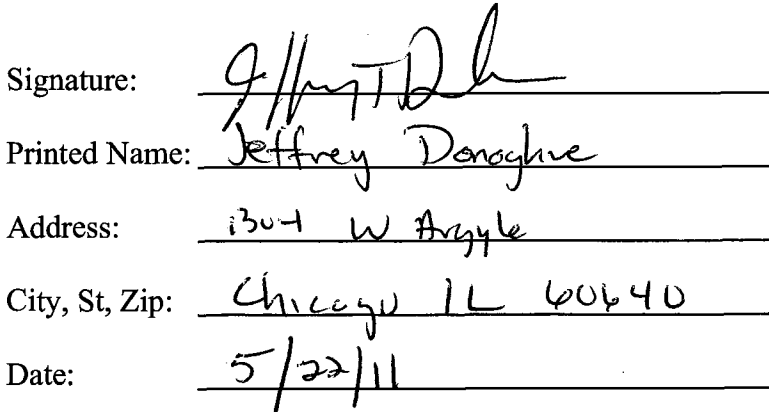 Signature:
Printed Name: Jeffrey Donoghue
Address: 1304 W Argyle
City, St, Zip: Chicago IL 60640
Date: 5/22/11